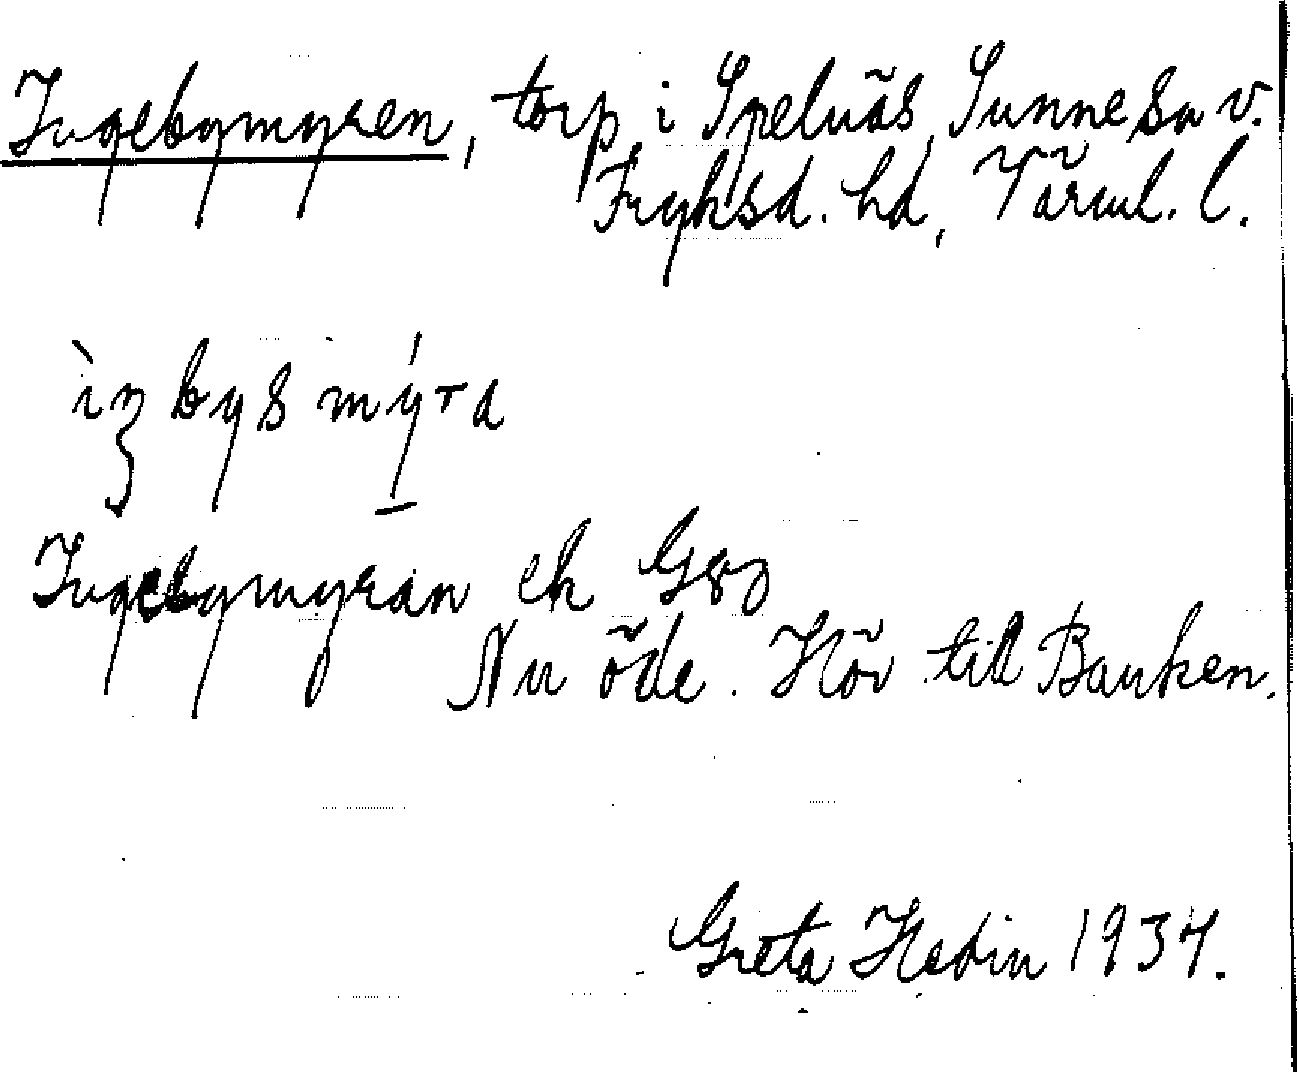 Ingebymyren, torp i Spelnäs, Sunne sn v.
Fryksd. hd, Värml. l.
ìŋbysmýra
Ingebymyran ek G83
Nu öde. Hör till Banken.
Greta Hedin 1934.